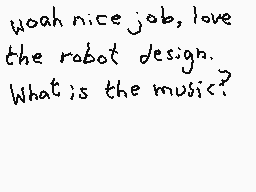 woah nice job, love
the robot design.
What is the music?